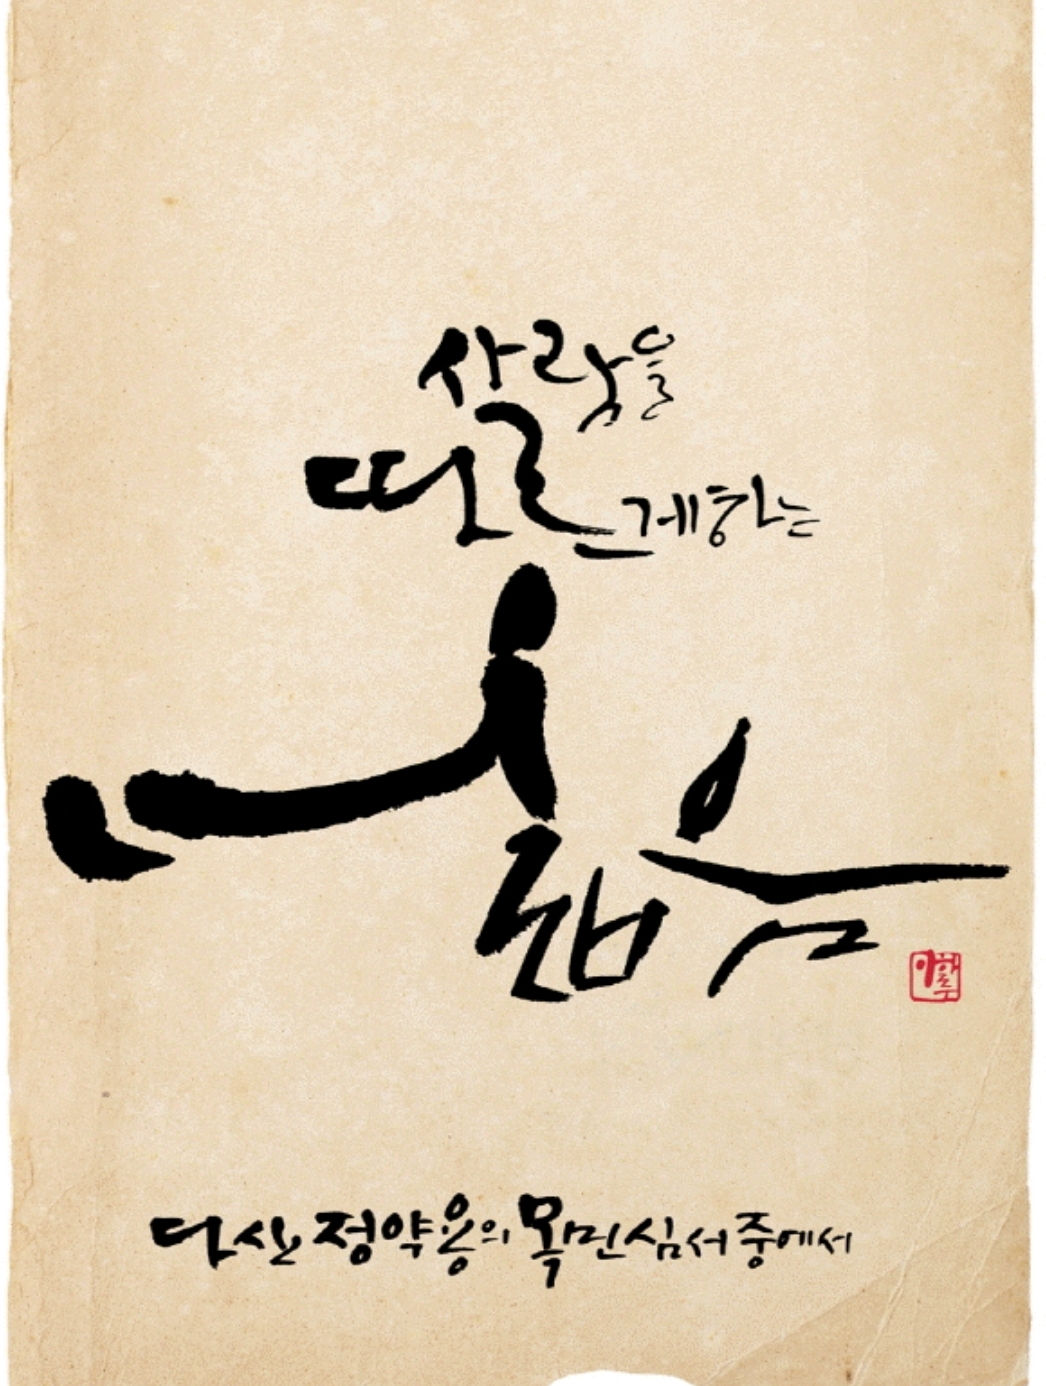 사람을
따르게하는
넓음
다산 정약용의 목민심서 중에서